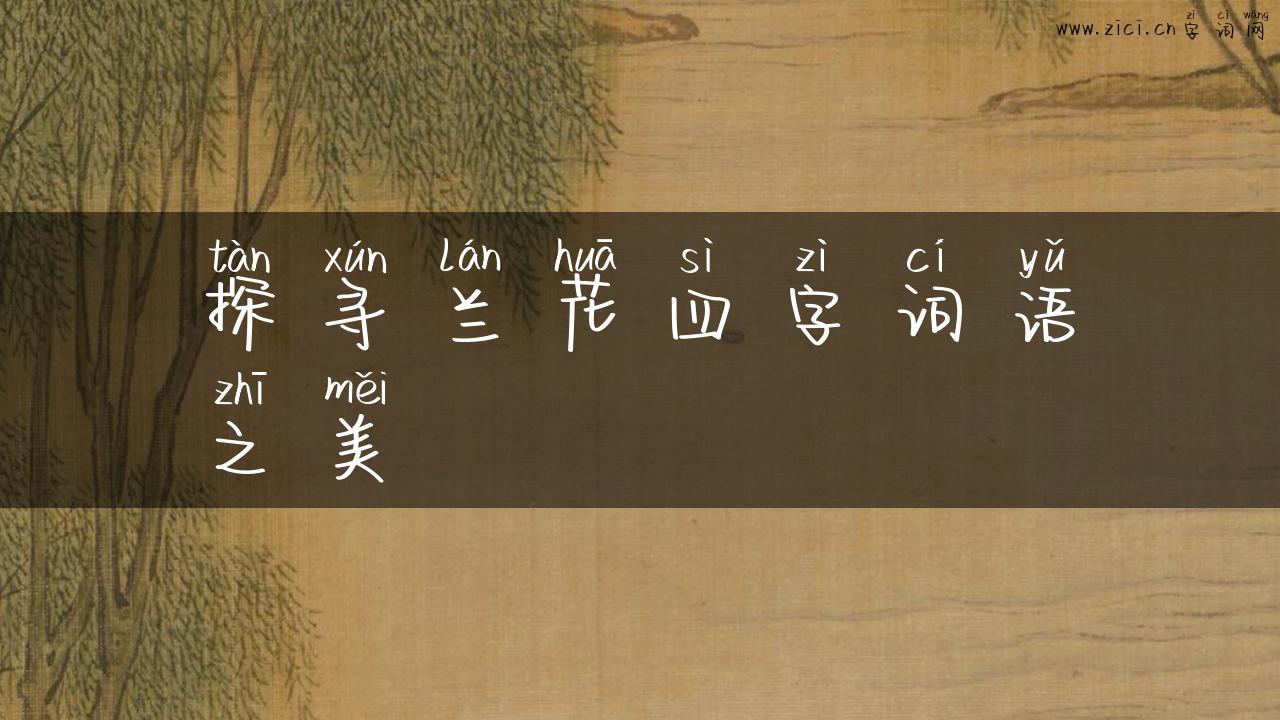 zì cí wǎng
www.zici.cn字词网
tàn xún lán huā sì zì cí yǔ
探寻兰花四字词语
zhī měi
之美